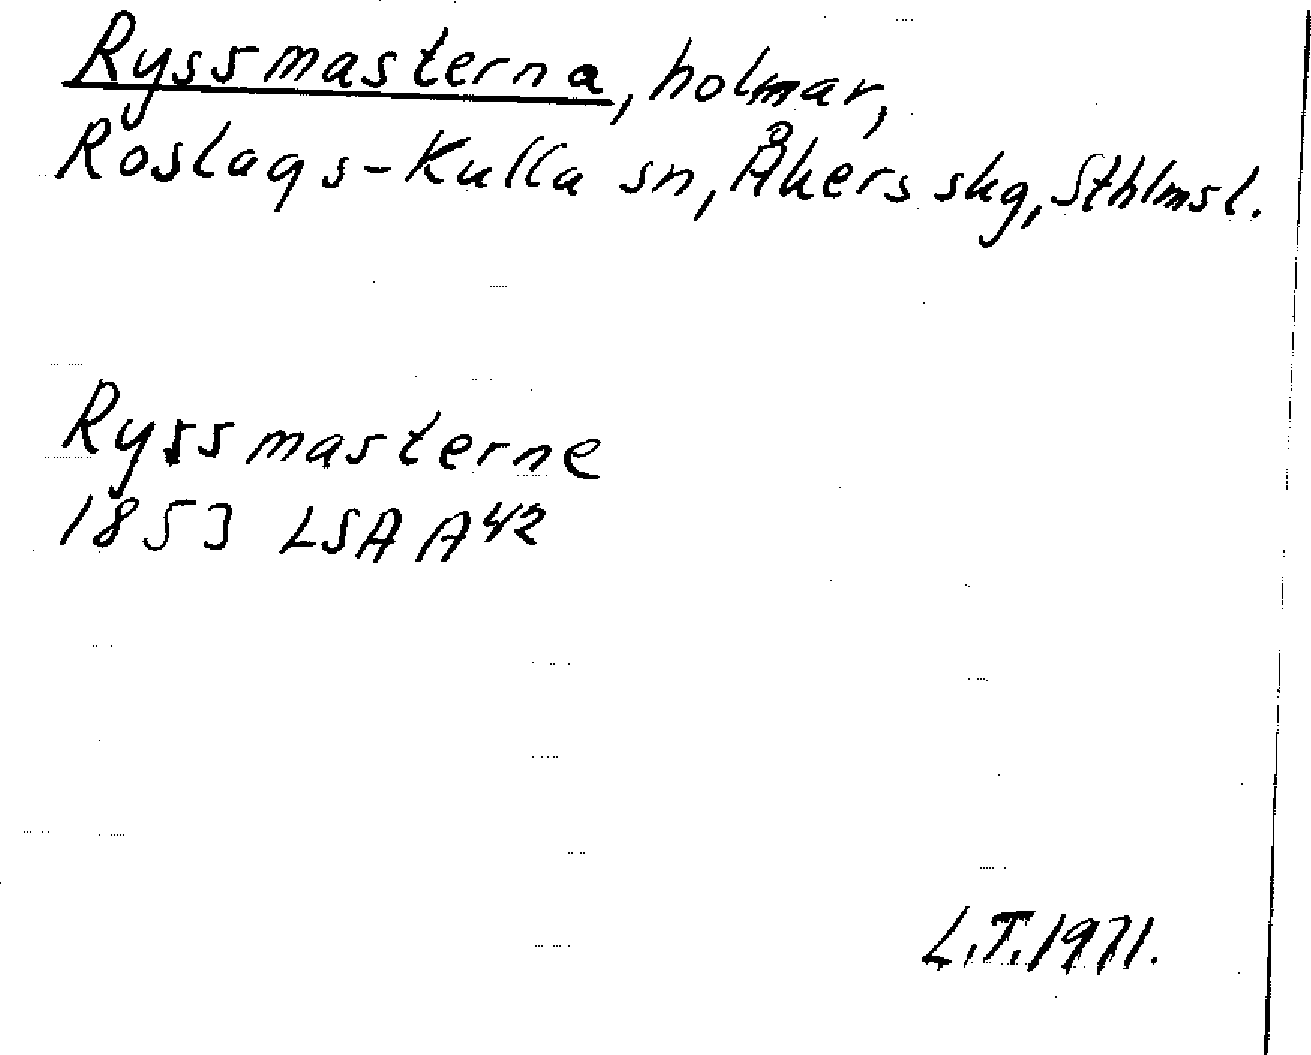 Ryssmasterna, holmar,
Roslags-Kulla sn, Åkers skg, Sthlmsl.
Ryssmasterne
1853 LSA A42
L.T. 1971.